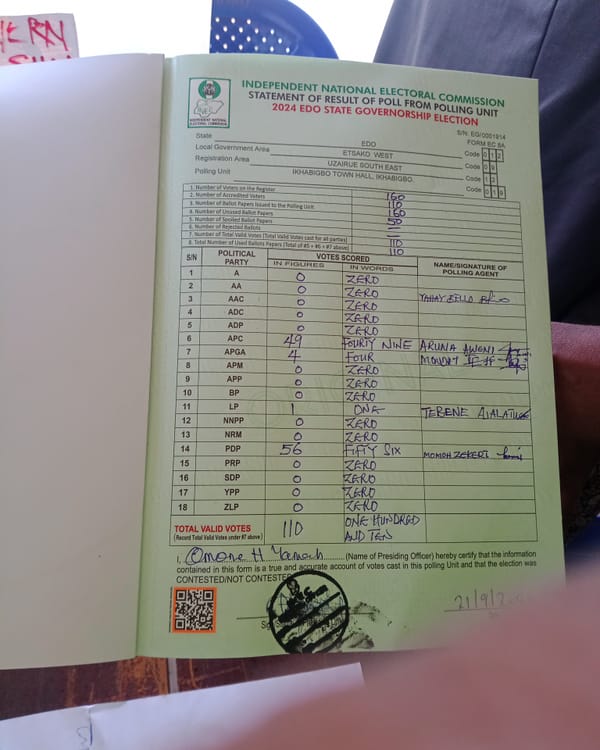 ERN
INDEPENDENT NATIONAL ELECTORAL COMMISSION
STATEMENT OF RESULT OF POLL FROM POLLING UNIT
2024 EDO STATE GOVERNORSHIP ELECTION
INDEPENDENT NATIONAL ELECTORAL COMMISSION
S/N: EG/0001914
FORM EC 8A
State EDO Code 0 1 2
Local Government Area ETSAKO WEST Code
Registration Area UZAIRUE SOUTH EAST Code
Polling Unit IKHABIGBO TOWN HALL, IKHABIGBO. Code
1. Number of Voters on the Register 160
2. Number of Accredited Voters 110
3. Number of Ballot Papers Issued to the Polling Unit 160
4. Number of Unused Ballot Papers 50
5. Number of Spoiled Ballot Papers —
6. Number of Rejected Ballots —
7. Number of Total Valid Votes (Total Valid Votes cast for all parties) 110
8. Total Number of Used Ballots Papers (Total of #5 + #6 + #7 above) 110
S/N POLITICAL PARTY VOTES SCORED NAME/SIGNATURE OF POLLING AGENT
IN FIGURES IN WORDS
1 A 0 ZERO
2 AA 0 ZERO
3 AAC 0 ZERO
4 ADC 0 ZERO
5 ADP 0 ZERO
6 APC 49 FOURTY NINE ARUNA AWONI
7 APGA 4 FOUR MONDAY
8 APM 0 ZERO
9 APP 0 ZERO
10 BP 0 ZERO
11 LP 1 ONE
12 NNPP 0 ZERO
13 NRM 0 ZERO
14 PDP 56 FIFTY SIX MOMOH ZEKERI
15 PRP 0 ZERO
16 SDP 0 ZERO
17 YPP 0 ZERO
18 ZLP 0 ZERO
TOTAL VALID VOTES 110 ONE HUNDRED AND TEN
(Record Total Valid Votes under #7 above)
I, Omone H (Name of Presiding Officer) hereby certify that the information
contained in this form is a true and accurate account of votes cast in this polling Unit and that the election was
CONTESTED/NOT CONTESTED
21/9/2